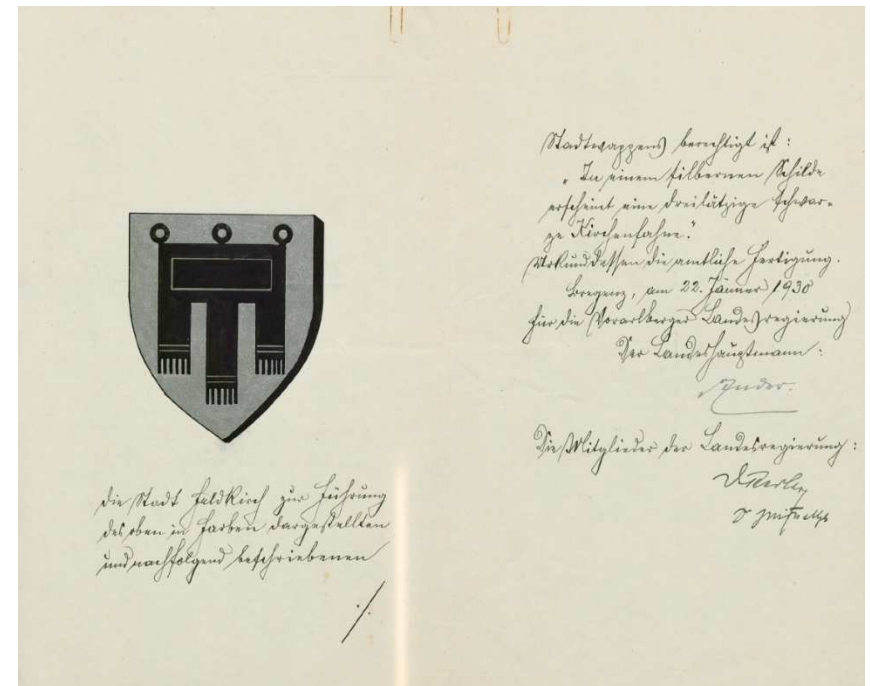 die Stadt Feldkirch zur Führung
des oben in Farben dargestellten
und nachfolgend beschriebenen
./.
Stadtwappens berechtigt ist:
„In einem silbernen Schilde
erscheint eine dreilätzige schwar-
ze Kirchenfahne."
Urkunddessen die amtliche Fertigung.
Bregenz, am 22. Jänner 1930
Für die Vorarlberger Landesregierung
Der Landeshauptmann:
Ender.
Die Mitglieder der Landesregierung: